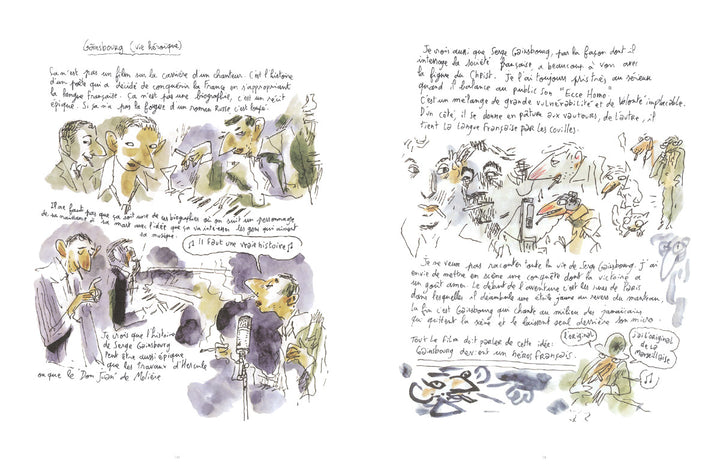 Gainsbourg (vie héroïque)
Ça n'est pas un film sur la carrière d'un chanteur. C'est l'histoire
d'un poète qui a décidé de conquérir la France en s'appropriant
la langue française. Ça n'est pas une biographie, c'est un récit
épique. Si ça n'a pas la force d'un roman Russe c'est loupé.
Il ne faut pas que ça soit une de ces biographies où on suit un personnage
de sa naissance à sa mort avec l'idée que ça va intéresser les gens qui aiment
sa musique.
Il faut une vraie histoire
Je crois que l'histoire
de Serge Gainsbourg
peut être aussi épique
que les Travaux d'Hercule
ou que le "Don Juan" de Molière
Je crois aussi que Serge Gainsbourg, par la façon dont il
interroge la société française, a beaucoup à voir avec
la figure du Christ. Je l'ai toujours pris très au sérieux
quand il balance au public son "Ecce Homo".
C'est un mélange de grande vulnérabilité et de volonté implacable.
D'un côté, il se donne en pâture aux vautours, de l'autre, il
tient la langue française par les couilles.
Je ne veux pas raconter toute la vie de Serge Gainsbourg. J'ai
envie de mettre en scène une conquête dont la victoire a
un goût amer. Le début de l'aventure c'est les rues de Paris
dans lesquelles il déambule une étoile jaune au revers du manteau.
La fin c'est Gainsbourg qui chante au milieu des jamaïcains
qui quittent la scène et le laissent seul derrière son micro.
Tout le film doit parler de cette idée:
Gainsbourg devient un héros français.
l'original
j'ai l'original
de La
Marseillaise